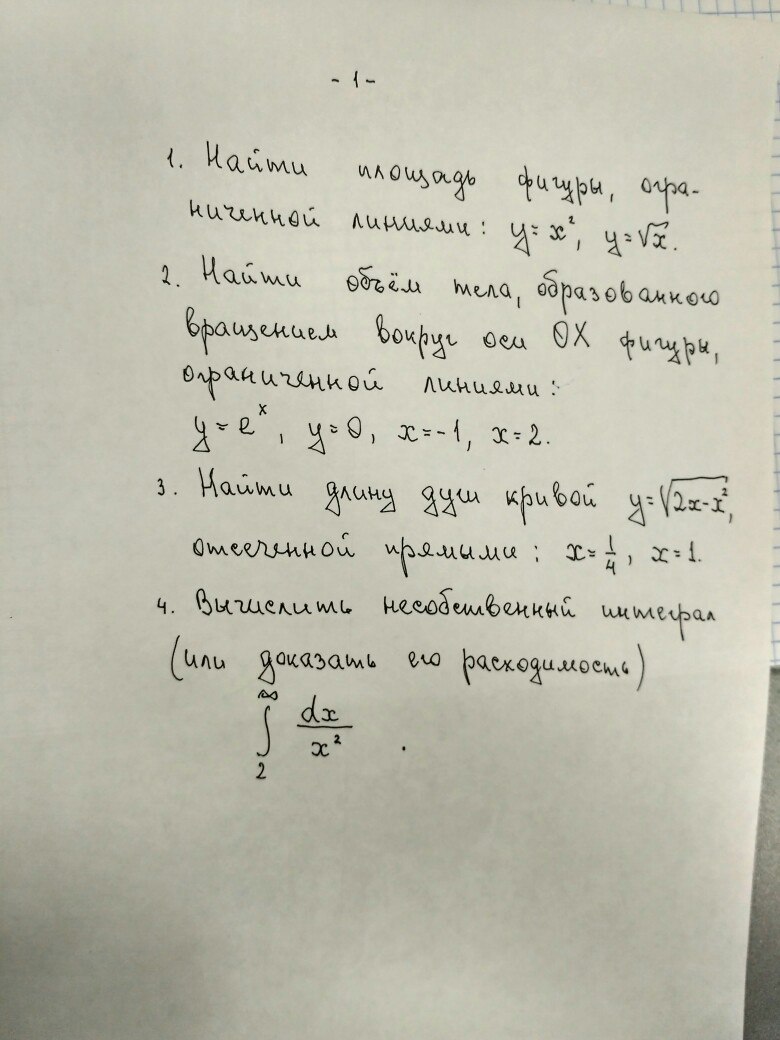 - 1 -
1. Найти площадь фигуры, огра-
ниченной линиями: y = x², y = √x.
2. Найти объём тела, образованного
вращением вокруг оси OX фигуры,
ограниченной линиями:
y = eˣ, y = 0, x = -1, x = 2.
3. Найти длину дуги кривой y = √(2x - x²),
отсеченной прямыми: x = 1/4, x = 1.
4. Вычислить несобственный интеграл
(или доказать его расходимость)
∫₂^∞ dx/x² .